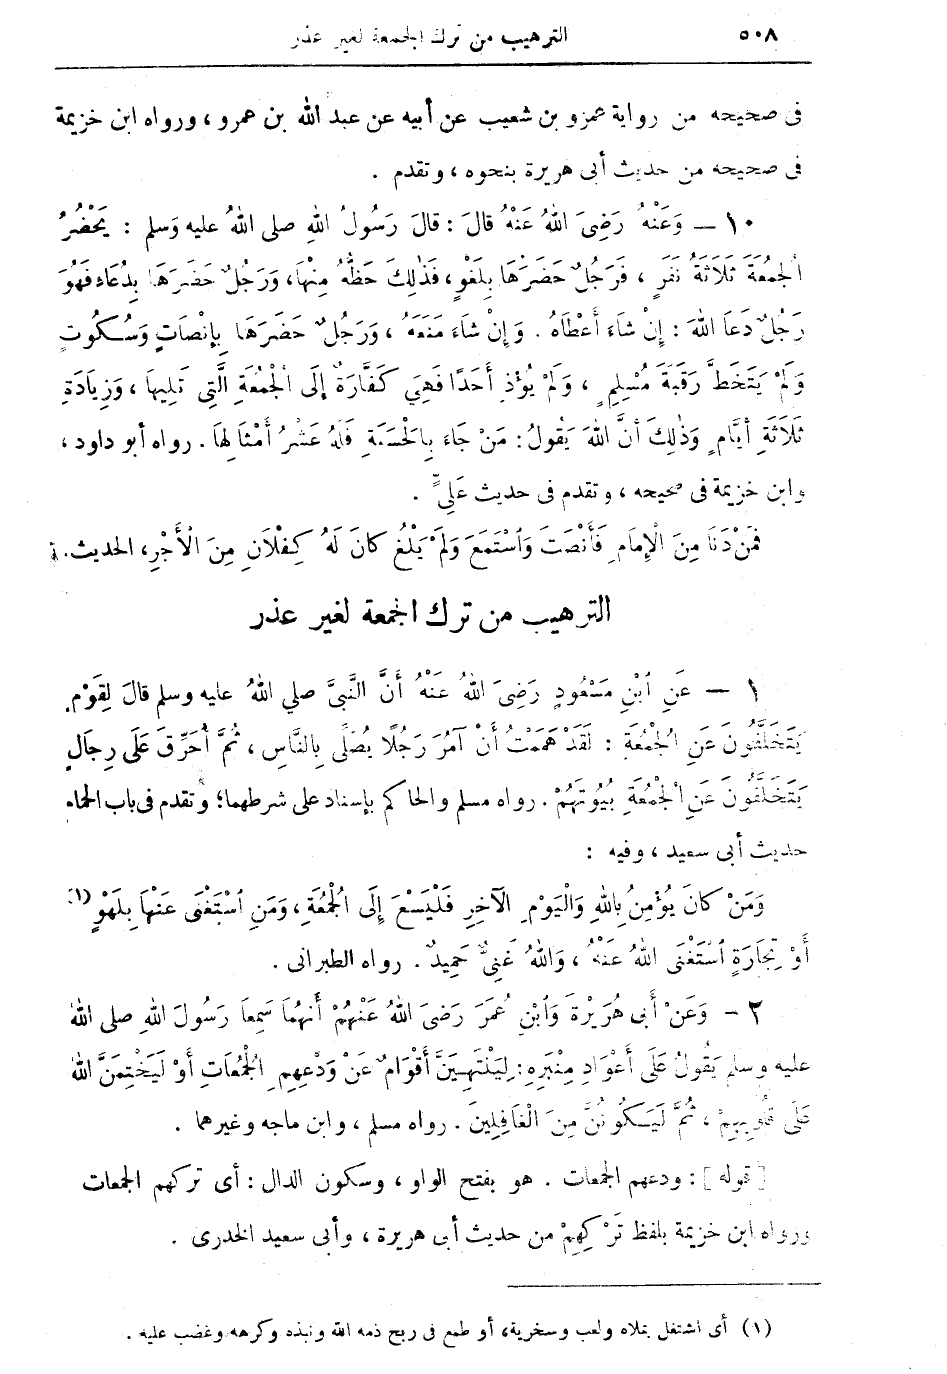 ٥٠٨ الترهيب من ترك الجمعة لغير عذر
فى صحيحه من رواية عمرو بن شعيب عن أبيه عن عبد الله بن عمرو ، ورواه ابن خزيمة
فى صحيحه من حديث أبى هريرة بنحوه ، وتقدم .
١٠ — وَعَنْهُ رَضِىَ اللهُ عَنْهُ قالَ : قالَ رَسُولُ اللهِ صلى اللهُ عليه وَسلم : يَحْضُرُ
الْجُمُعَةَ ثَلَاثَةُ نَفَرٍ ، فَرَجُلٌ حَضَرَهَا بِلَغْوٍ ، فَذٰلِكَ حَظُّهُ مِنْهَا ، وَرَجُلٌ حَضَرَهَا بِدُعَاءٍ فَهُوَ
رَجُلٌ دَعَا اللهَ : إِنْ شَاءَ أَعْطَاهُ . وَإِنْ شَاءَ مَنَعَهُ ، وَرَجُلٌ حَضَرَهَا بِإِنْصَاتٍ وَسُكُوتٍ
وَلَمْ يَتَخَطَّ رَقَبَةَ مُسْلِمٍ ، وَلَمْ يُؤْذِ أَحَدًا فَهِيَ كَفَّارَةٌ إِلَى الْجُمُعَةِ الَّتِى تَلِيهَا ، وَزِيَادَةِ
ثَلَاثَةِ أَيَّامٍ وَذٰلِكَ أَنَّ اللهَ يَقُولُ : مَنْ جَاءَ بِالْحَسَنَةِ فَلَهُ عَشْرُ أَمْثَالِهَا . رواه أبو داود ،
وابن خزيمة فى صحيحه ، وتقدم فى حديث عَلِىٍّ .
فَمَنْ دَنَا مِنَ الْإِمَامِ فَأَنْصَتَ وَاسْتَمَعَ وَلَمْ يَلْغُ كانَ لَهُ كِفْلَانِ مِنَ الْأَجْرِ ، الحديث .
الترهيب من ترك الجمعة لغير عذر
١ — عَنِ ابْنِ مَسْعُودٍ رَضِىَ اللهُ عَنْهُ أَنَّ النَّبِىَّ صلى اللهُ عليه وسلم قالَ لِقَوْمٍ
يَتَخَلَّفُونَ عَنِ الْجُمُعَةِ : لَقَدْ هَمَمْتُ أَنْ آمُرَ رَجُلًا يُصَلِّى بِالنَّاسِ ، ثُمَّ أُحَرِّقَ عَلَى رِجَالٍ
يَتَخَلَّفُونَ عَنِ الْجُمُعَةِ بُيُوتَهُمْ . رواه مسلم والحاكم بإسناد على شرطهما ؛ وتقدم فى باب الحمام
حديث أبى سعيد ، وفيه :
وَمَنْ كانَ يُؤْمِنُ بِاللهِ وَالْيَوْمِ الآخِرِ فَلْيَسْعَ إِلَى الْجُمُعَةِ ، وَمَنِ اسْتَغْنَى عَنْهَا بِلَهْوٍ (١)
أَوْ تِجَارَةٍ اسْتَغْنَى اللهُ عَنْهُ ، وَاللهُ غَنِىٌّ حَمِيدٌ . رواه الطبرانى .
٢ — وَعَنْ أَبِى هُرَيْرةَ وَابْنِ عُمَرَ رَضِىَ اللهُ عَنْهُمْ أَنَّهُمَا سَمِعَا رَسُولَ اللهِ صلى اللهُ
عليه وسلم يَقُولُ عَلَى أَعْوَادِ مِنْبَرِهِ : لِيَنْتَهِيَنَّ أَقْوَامٌ عَنْ وَدْعِهِمِ الْجُمُعَاتِ أَوْ لَيَخْتِمَنَّ اللهُ
عَلَى قُلُوبِهِمْ ، ثُمَّ لَيَكُونُنَّ مِنَ الْغَافِلِينَ . رواه مسلم ، وابن ماجه وغيرهما .
[قوله] : ودعهم الجمعات . هو بفتح الواو ، وسكون الدال : أى تركهم الجمعات
ورواه ابن خزيمة بلفظ تَرْكِهِمْ من حديث أبى هريرة ، وأبى سعيد الخدرى .
(١) أى اشتغل بملاه ولعب وسخرية ، أو طمع فى ربح ذمه الله ونبذه وكرهه وغضب عليه .